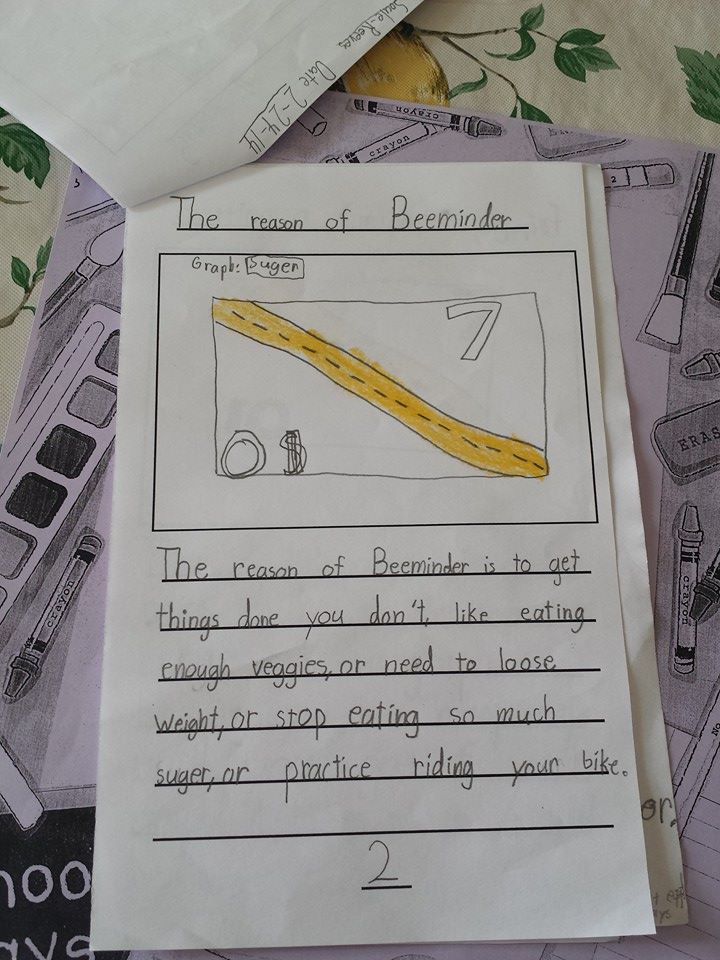 Soule-Reeves
Date 2-24-14
crayon
crayon
The reason of Beeminder
Graph: Suger
7
0 $
The reason of Beeminder is to get
things done you don't, like eating
enough veggies, or need to loose
weight, or stop eating so much
suger, or practice riding your bike.
2
ERAS
crayon
crayon
or.